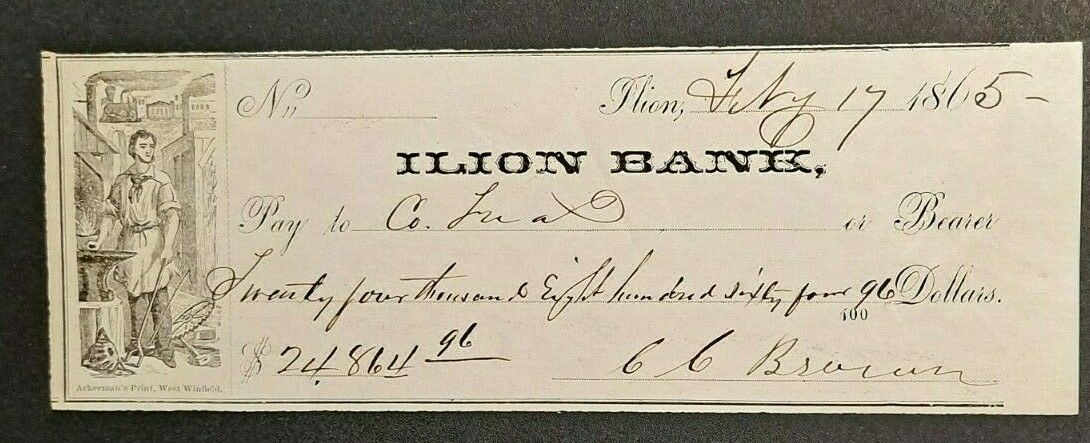 No
Ilion, Feby 17 1865-
ILION BANK,
Pay to Co. Treas or Bearer
Twenty four thousand Eight hundred sixty four 96/100 Dollars.
$ 24,864 96
C C Brown
Ackerman's Print, West Winfield.